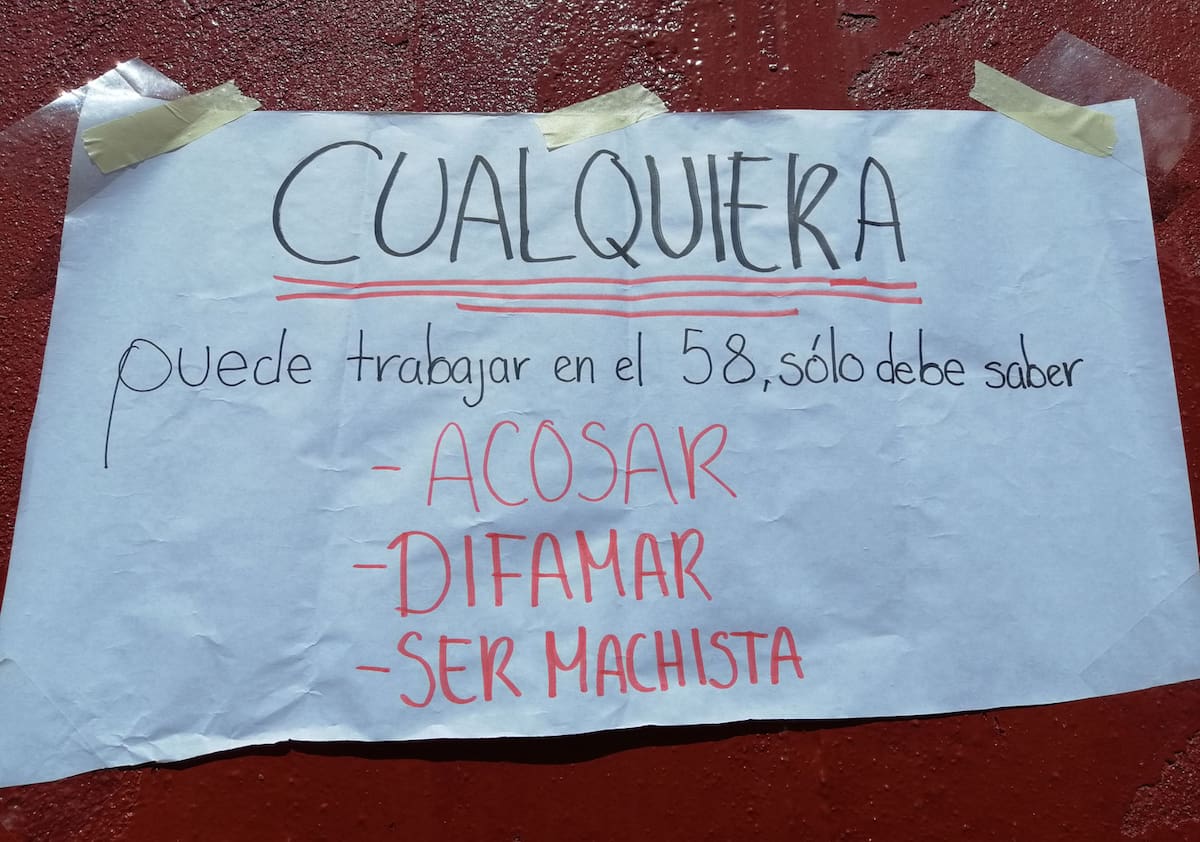 CUALQUIERA
puede trabajar en el 58, sólo debe saber
- ACOSAR
- DIFAMAR
- SER MACHISTA